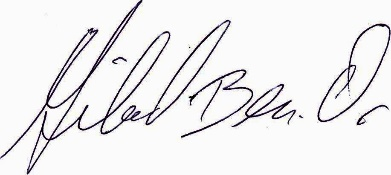 Gilad Ben-Or